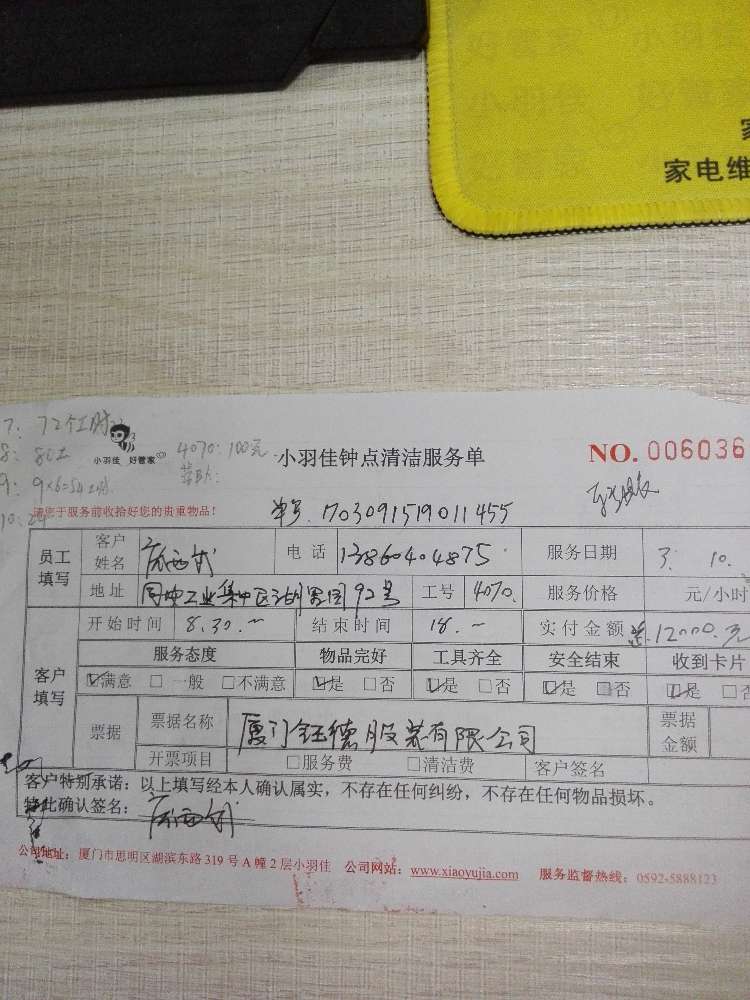 家电维
7: 72个工时
8: 80工
9: 9×6=54工时
小羽佳 好管家
4070:100元
小羽佳钟点清洁服务单
NO. 006036
请您于服务前收拾好您的贵重物品!
单号: 170309151901 1455
员工填写 客户姓名 电话 13860404875 服务日期 3. 10.
地址 同安工业集中区湖里园92号 工号 4070. 服务价格 元/小时
开始时间 8.30. 结束时间 18. 实付金额 12000.元
客户填写 服务态度 物品完好 工具齐全 安全结束 收到卡片
☑满意 □一般 □不满意 ☑是 □否 ☑是 □否 ☑是 □否 ☑是 □否
票据 票据名称 厦门钰德服装有限公司 票据金额
开票项目 □服务费 □清洁费 客户签名
客户特别承诺:以上填写经本人确认属实,不存在任何纠纷,不存在任何物品损坏。
特此确认签名:
公司地址:厦门市思明区湖滨东路319号A幢2层小羽佳 公司网站:www.xiaoyujia.com 服务监督热线:0592-5888123